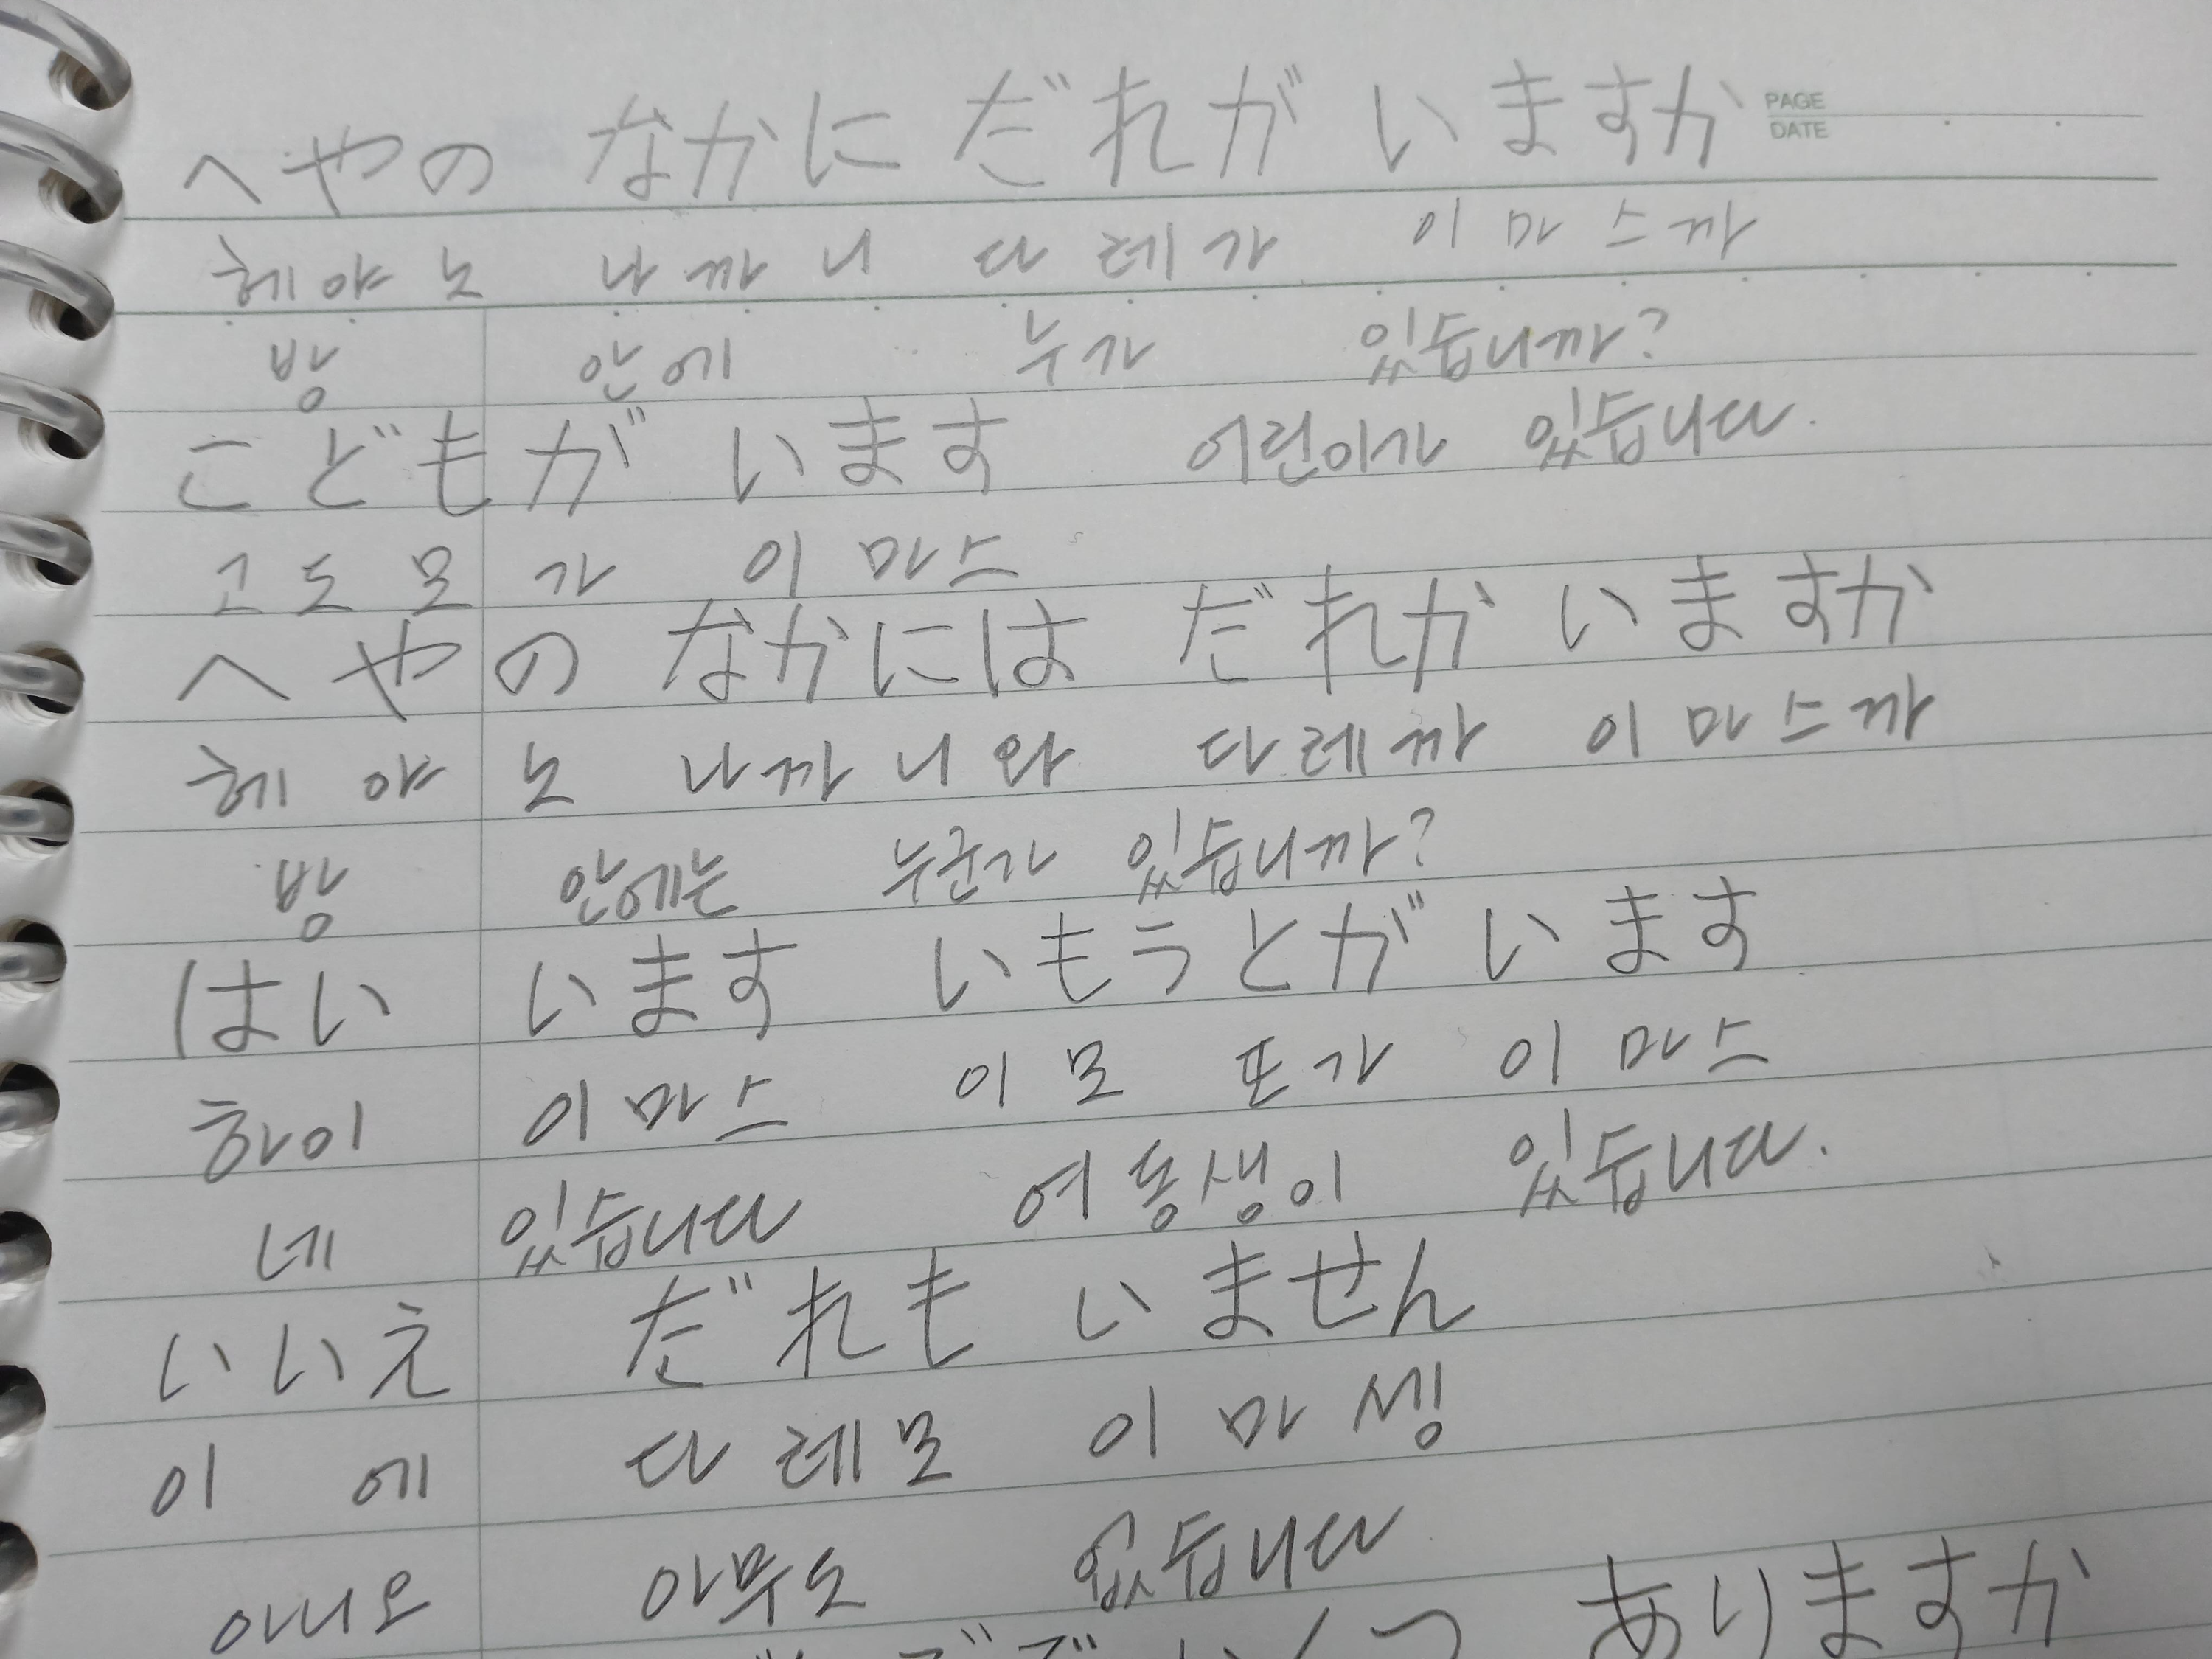 へやの なかに だれが いますか
PAGE
DATE
헤야노 나까니 다레가 이마스까
방 안에 누가 있습니까?
こどもが います 어린이가 있습니다.
고도모가 이마스
へやの なかには だれか いますか
헤야노 나까니와 다레까 이마스까
방 안에는 누군가 있습니까?
はい います いもうとが います
하이 이마스 이모또가 이마스
네 있습니다 여동생이 있습니다.
いいえ だれも いません
이에 다레모 이마셍
아니오 아무도 없습니다
ありますか